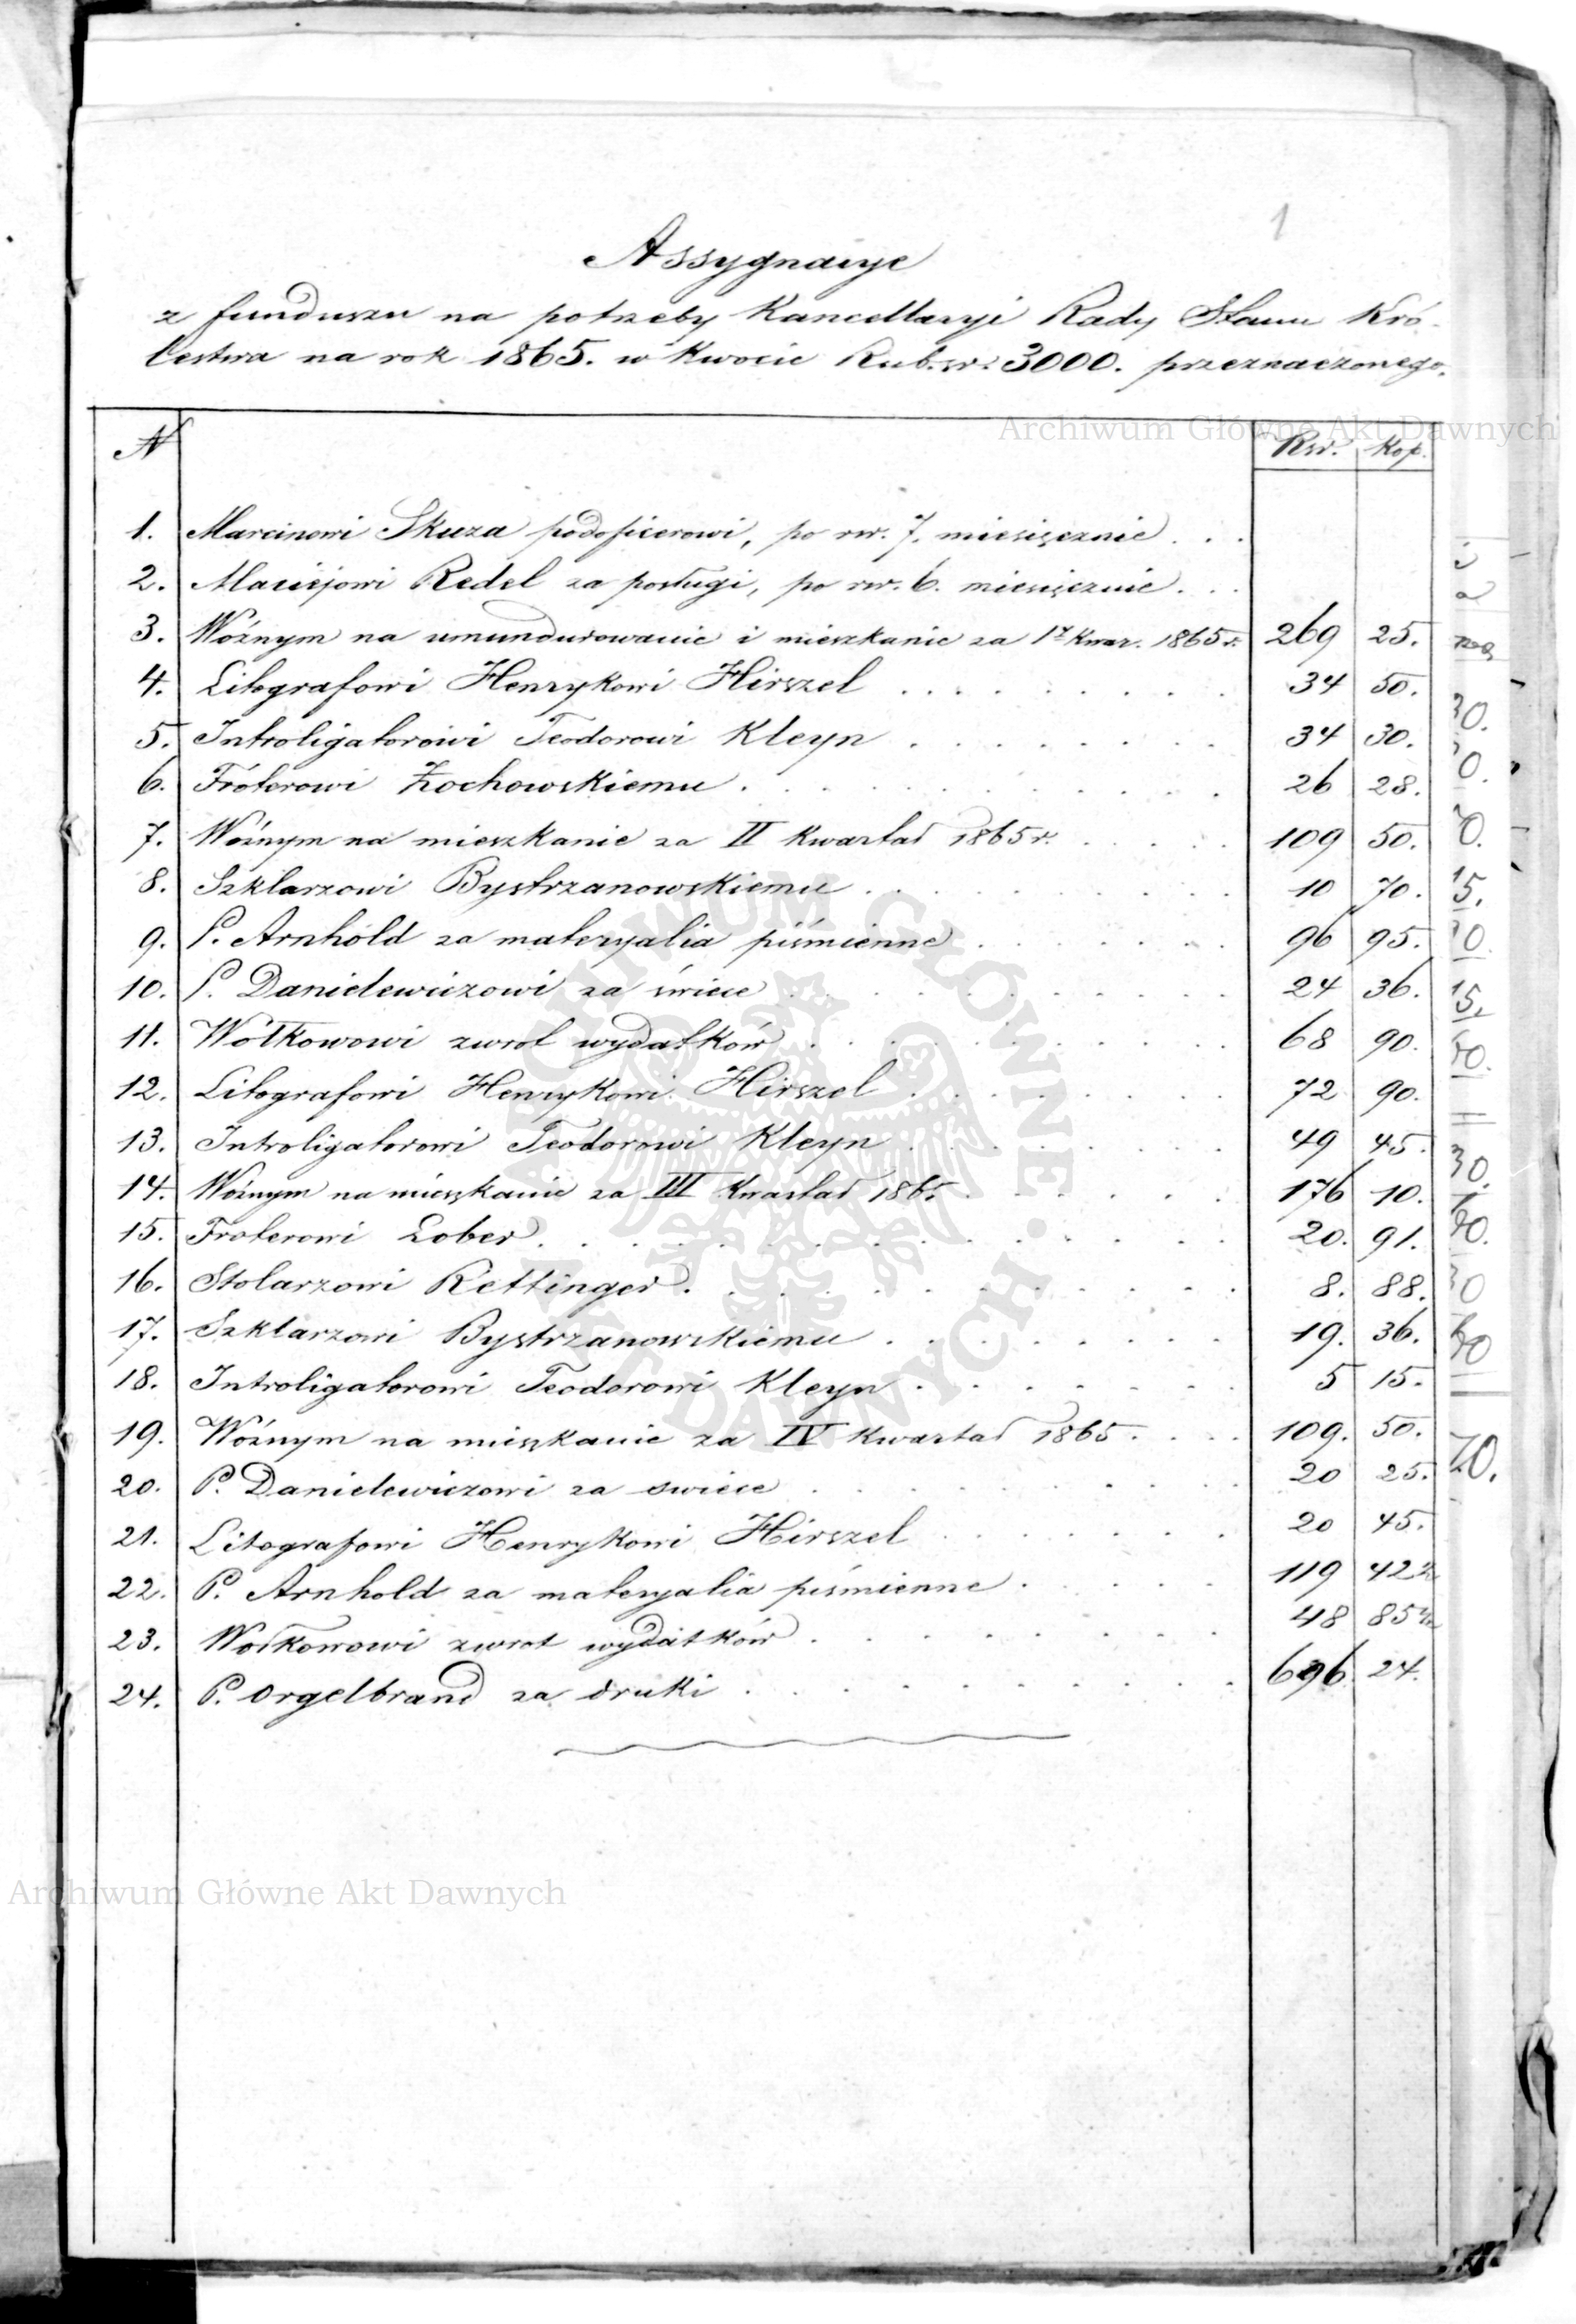 1
Assygnacye
z funduszu na potrzeby Kancellaryi Rady Stanu Kró-
lestwa na rok 1865. w kwocie Rub. sr. 3000. przeznaczonego.
N Rsr. Kop.
1. Marcinowi Skuza podoficerowi, po rsr. 7. miesięcznie . . .
2. Maciejowi Redel za posługi, po rsr. 6. miesięcznie . . .
3. Woźnym na umundurowanie i mieszkanie za 1y Kwar. 1865 r. 269 25.
4. Litografowi Henrykowi Hirszel . . . 34 50.
5. Introligatorowi Teodorowi Kleyn . . . 34 30.
6. Fróterowi Żochowskiemu . . . 26 28.
7. Woźnym na mieszkanie za II Kwartał 1865 r. . . . 109 50.
8. Szklarzowi Bystrzanowskiemu . . . 10 70.
9. P. Arnhold za materyalia piśmienne . . . 96 95.
10. P. Danielewiczowi za świece . . . 24 36.
11. Wołkowowi zwrot wydatków . . . 68 90.
12. Litografowi Henrykowi Hirszel . . . 72 90.
13. Introligatorowi Teodorowi Kleyn . . . 49 45.
14. Woźnym na mieszkanie za III Kwartał 1865 . . . 176 10.
15. Froterowi Lober . . . 20. 91.
16. Stolarzowi Rettinger . . . 8. 88.
17. Szklarzowi Bystrzanowskiemu . . . 19. 36.
18. Introligatorowi Teodorowi Kleyn . . . 5 15.
19. Woźnym na mieszkanie za IV Kwartał 1865 . . . 109. 50.
20. P. Danielewiczowi za swiece . . . 20 25.
21. Litografowi Henrykowi Hirszel . . . 20 45.
22. P. Arnhold za materyalia piśmienne . . . 119 42 ½
23. Wołkowowi zwrot wydatków . . . 48 85 ½
24. P. Orgelbrand za druki . . . 696 24.
Archiwum Główne Akt Dawnych
Archiwum Główne Akt Dawnych
ARCHIWUM GŁÓWNE AKT DAWNYCH